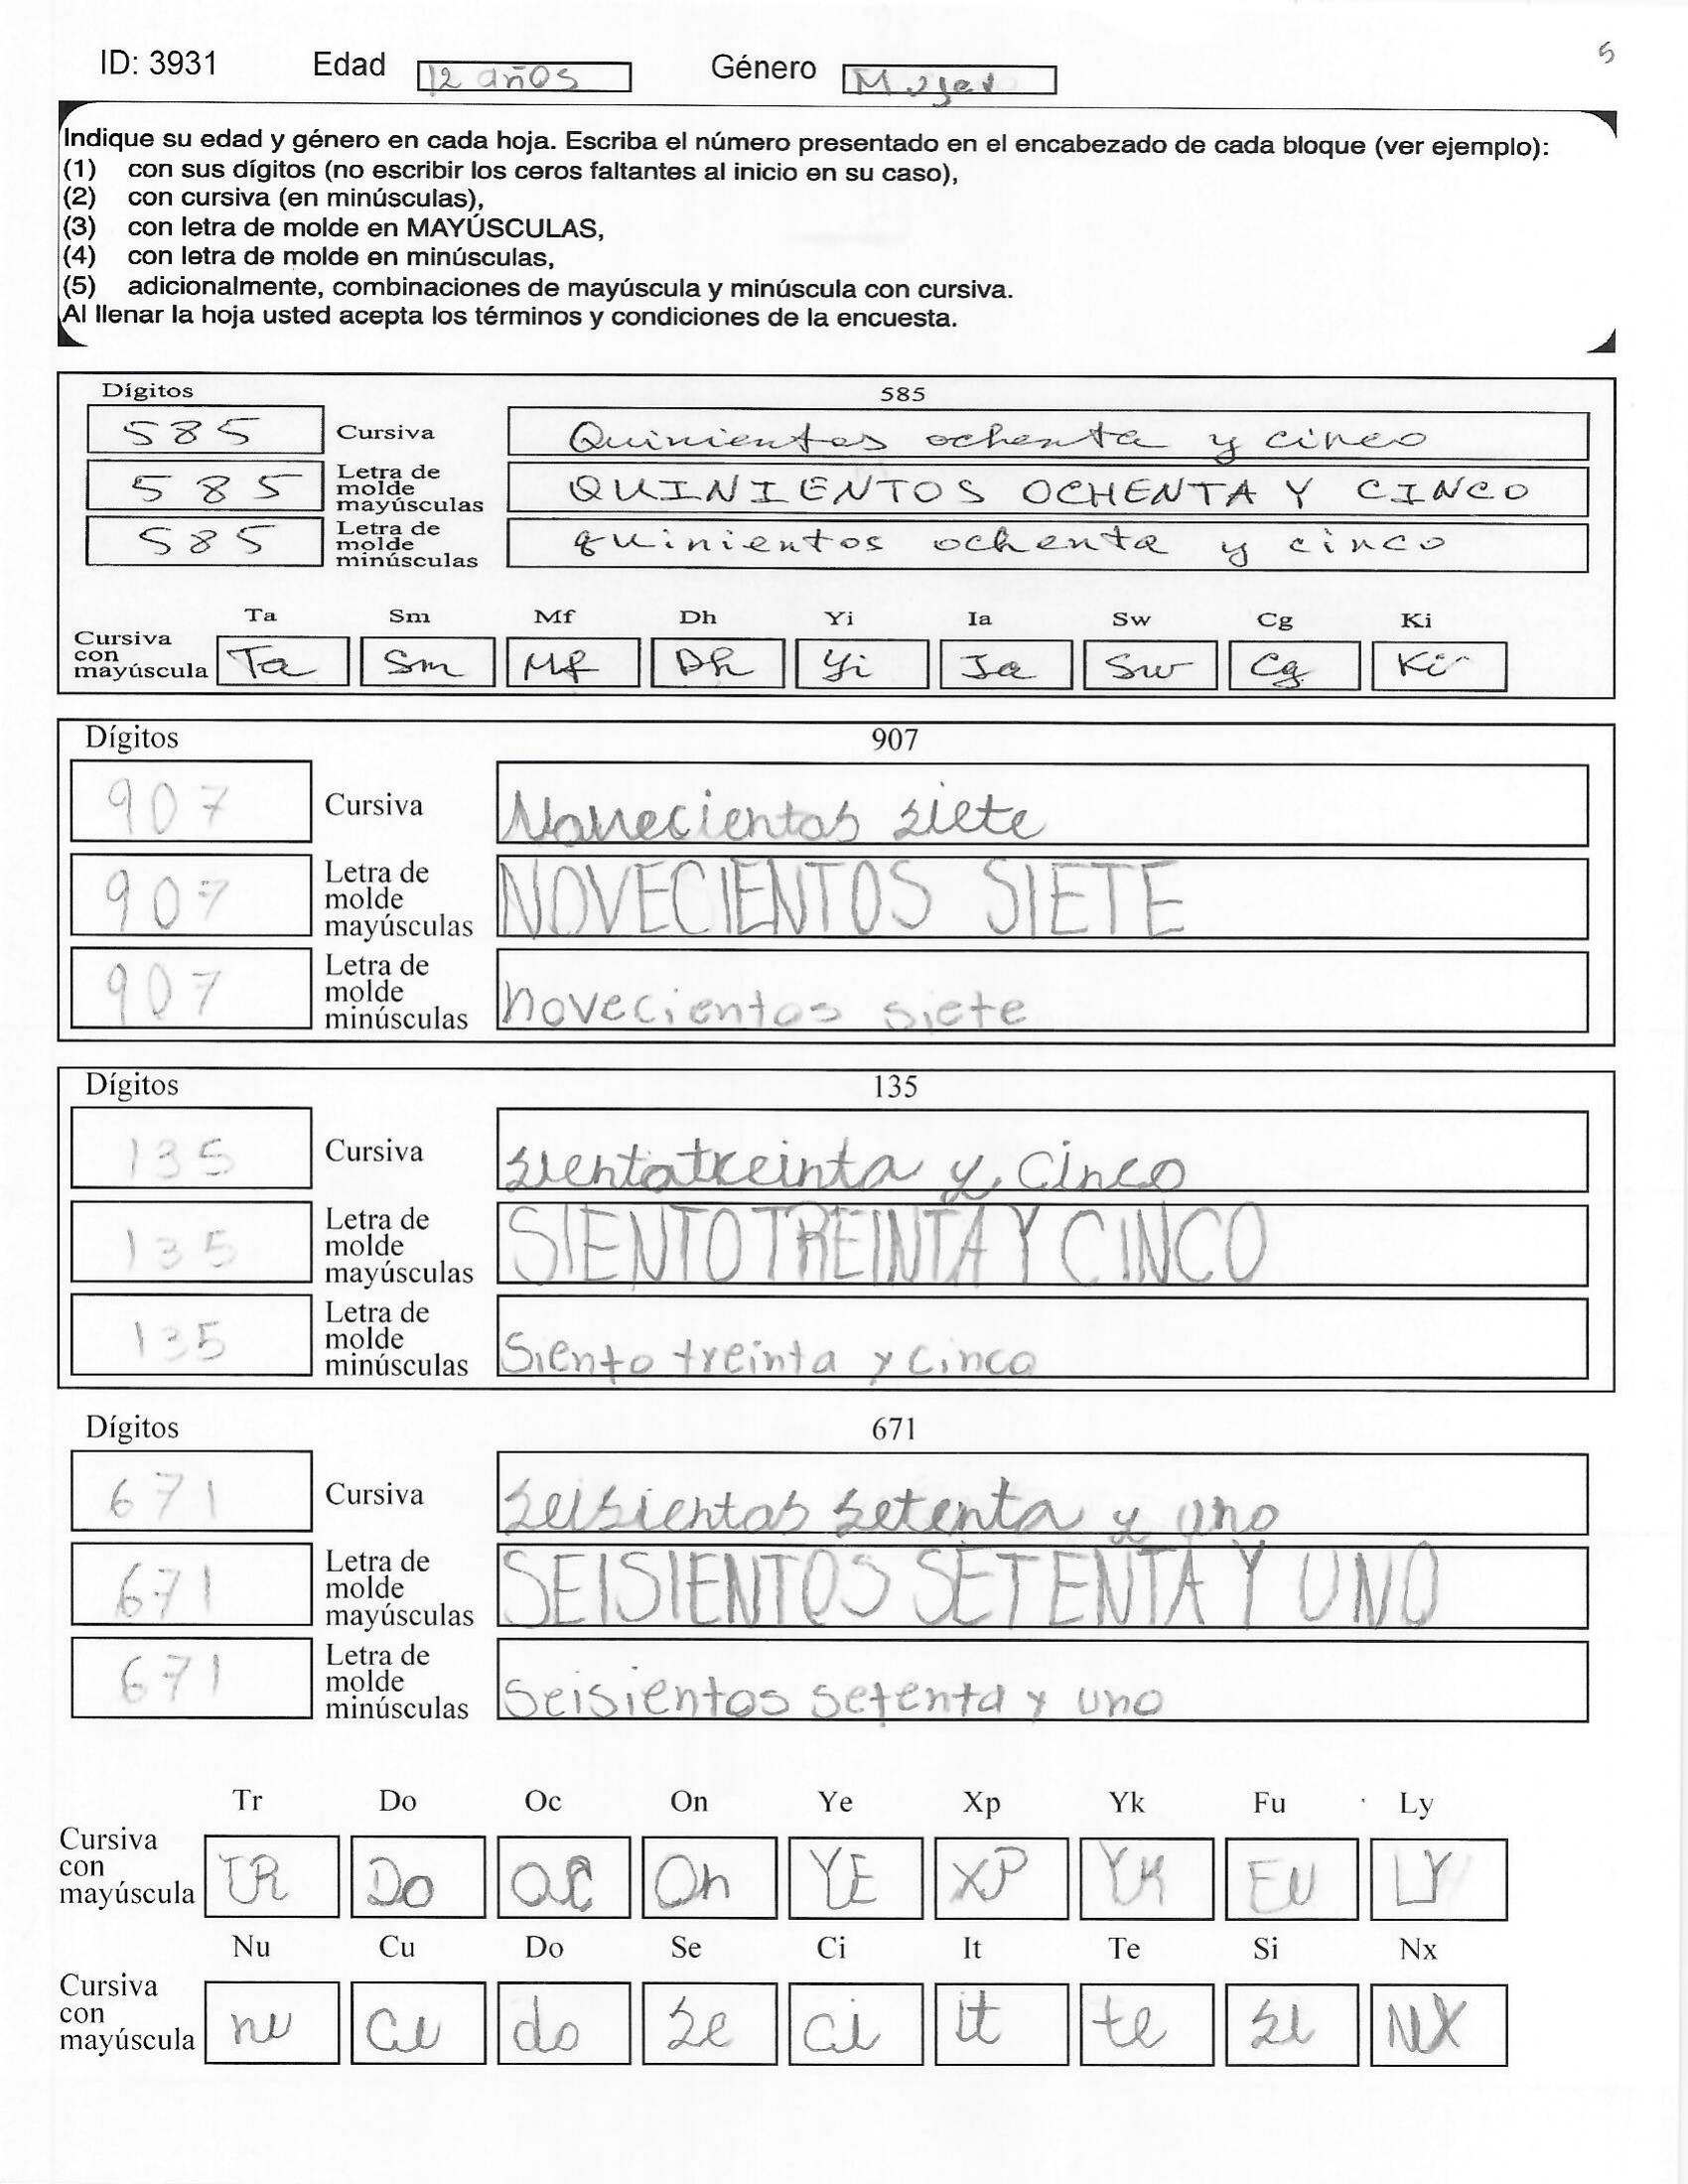 ID: 3931 Edad 12 años Género Mujer 5
Indique su edad y género en cada hoja. Escriba el número presentado en el encabezado de cada bloque (ver ejemplo):
(1) con sus dígitos (no escribir los ceros faltantes al inicio en su caso),
(2) con cursiva (en minúsculas),
(3) con letra de molde en MAYÚSCULAS,
(4) con letra de molde en minúsculas,
(5) adicionalmente, combinaciones de mayúscula y minúscula con cursiva.
Al llenar la hoja usted acepta los términos y condiciones de la encuesta.
Dígitos 585
585 Cursiva Quinientos ochenta y cinco
585 Letra de molde mayúsculas QUINIENTOS OCHENTA Y CINCO
585 Letra de molde minúsculas quinientos ochenta y cinco
Ta Sm Mf Dh Yi Ia Sw Cg Ki
Cursiva con mayúscula Ta Sm Mf Dh Yi Ia Sw Cg Ki
Dígitos 907
907 Cursiva Novecientos siete
907 Letra de molde mayúsculas NOVECIENTOS SIETE
907 Letra de molde minúsculas novecientos siete
Dígitos 135
135 Cursiva sientotreinta y cinco
135 Letra de molde mayúsculas SIENTO TREINTA Y CINCO
135 Letra de molde minúsculas Siento treinta y cinco
Dígitos 671
671 Cursiva seisientos setenta y uno
671 Letra de molde mayúsculas SEISIENTOS SETENTA Y UNO
671 Letra de molde minúsculas seisientos setenta y uno
Tr Do Oc On Ye Xp Yk Fu Ly
Cursiva con mayúscula TR Do OC On YE XP YK FU LY
Nu Cu Do Se Ci It Te Si Nx
Cursiva con mayúscula nu Cu do se ci it te si NX